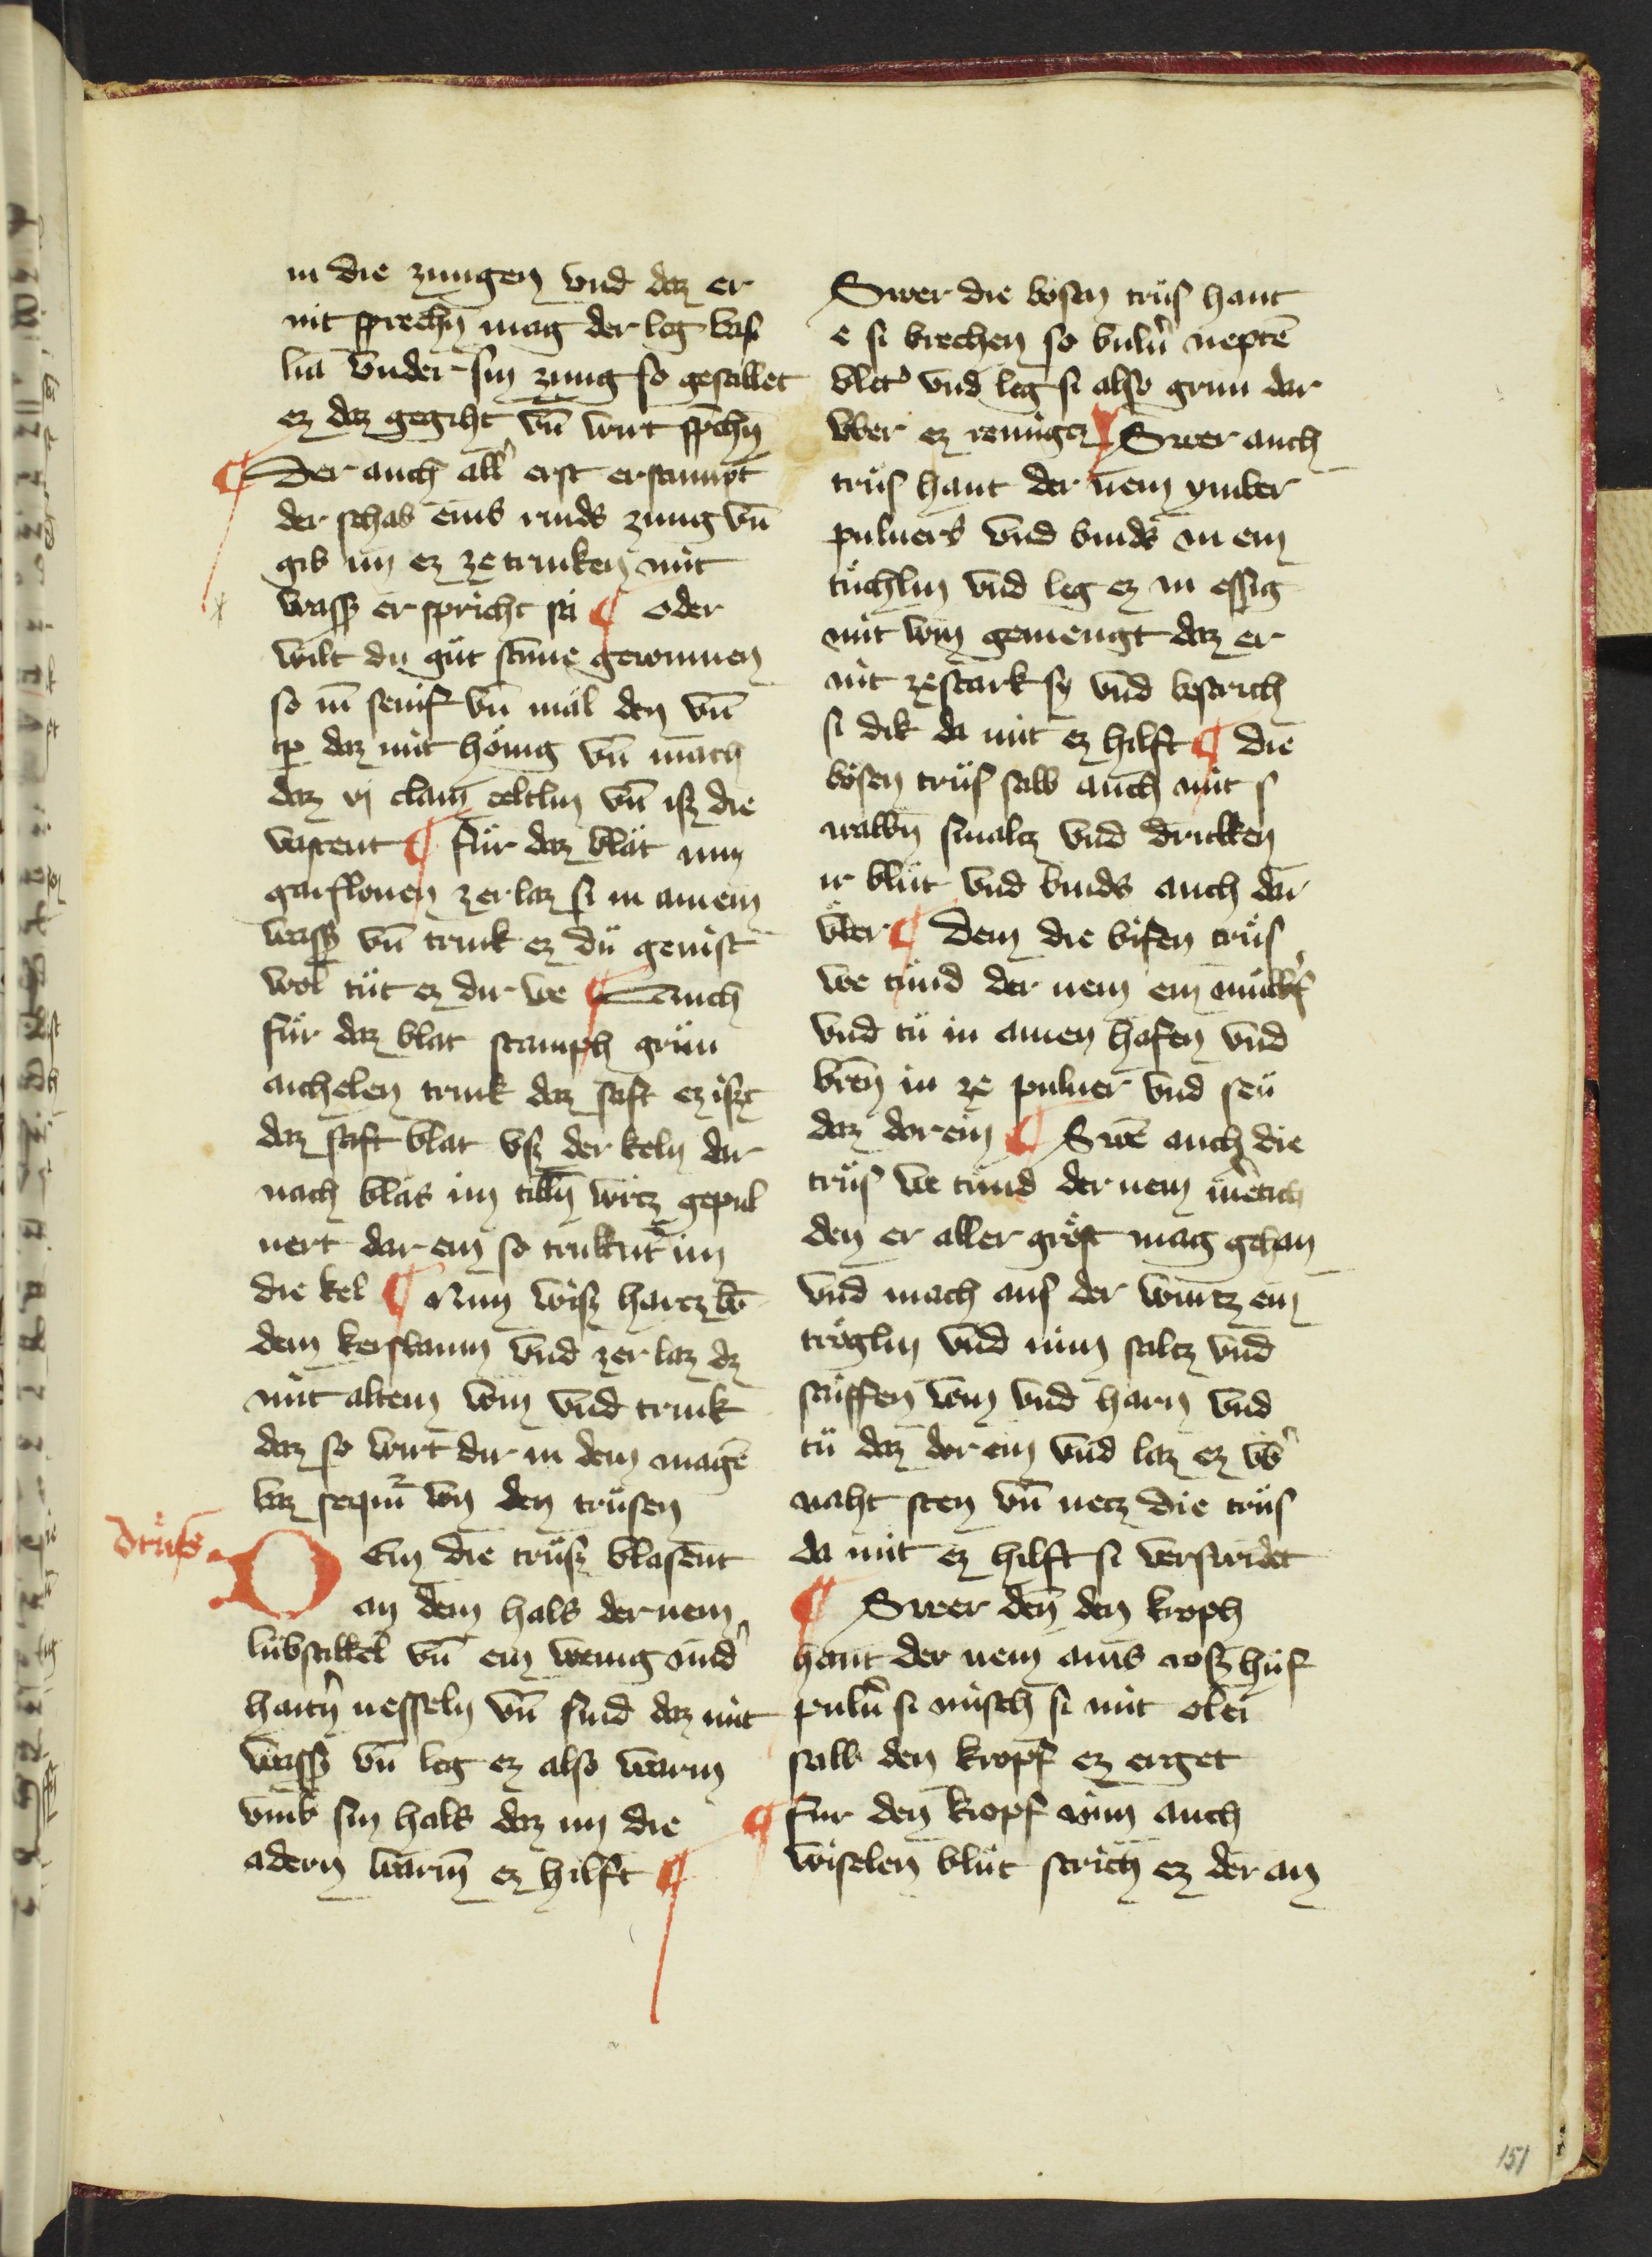 in die zungen vnd daz er
nit sprechn̄ mag der leg basi
liā vnder sin zung so gestillet
ez daz gegiht vn̄ wirt spchn̄
¶ Der auch all' erst erstumpt
der schab eins rinds zung vn̄
gib im ez ze trinken mit
wasser er spricht sa ¶ oder
wilt du gůt stime gewinnen
so nī senif vn̄ mal den vn̄
tp̄ daz mit honig vn̄ mach
daz vj clain zeltlin vn̄ isz die
vastent ¶ Für daz blat nim
gaisslonen zerlaz si in ainem
wasser vn̄ trink ez du genist
wol tůt ez dir we ¶ Auch
für daz blat stamph grůn
aichelen trink daz saft ez iszt
daz saft blat vsz der keln dar
nach blas im wirtz gepul
uert dar ein so trukut im
die kel ¶ Nim wisz hartz vō
dem kersbaum vnd zerlaz dz
mit altem win vnd trink
daz so wirt dir in dem magē
baz sequit' von den trůsen
drůss
Dem die trůsz blasent
an dem hals der nem
lubstikkel vn̄ ein wenig vnd'
haitn̄ nesseln vn̄ sud daz mit
wasser vn̄ leg ez also warm
vmb sin hals daz im die
adern warm̄ ez hilft ¶
Swer die bosen trůs hant
e si brechen so puluer neptē
blet' vnd leg si also grůn dar
vber ez reniget ¶ Swer auch
trůs hant der nem ymber
puluers vnd binds in ein
tůchlin vnd leg ez in essig
mit win gemengt daz er
nit ze stark sy vnd bestrich
si dik da mit ez hilft ¶ die
bosen trůs salb auch mit s
walbn̄ smaltz vnd drukken
ir blůt vnd binds auch dar
vber ¶ Dem die bosen trůs
we tůnd der nem ein
vnd tů in ainen hafen vnd
bren in ze puluer vnd seu
daz dorein ¶ Swē auch die
trůs we tůnd der nem merretich
den er aller gröst mag gehan
vnd mach aus der wurtz ein
tröglin vnd nim saltz vnd
saiffen win vnd harn vnd
tů daz dor ein vnd laz ez vb'
naht sten vn̄ netz die trůs
da mit ez hilft si verswindet
¶ Swer den den kroph
hant der nem ains rosz hůf
puluer si misch si mit olei
salb den kropf ez erget
¶ Fur den kropf nim auch
wiselen blůt strich ez der an
151